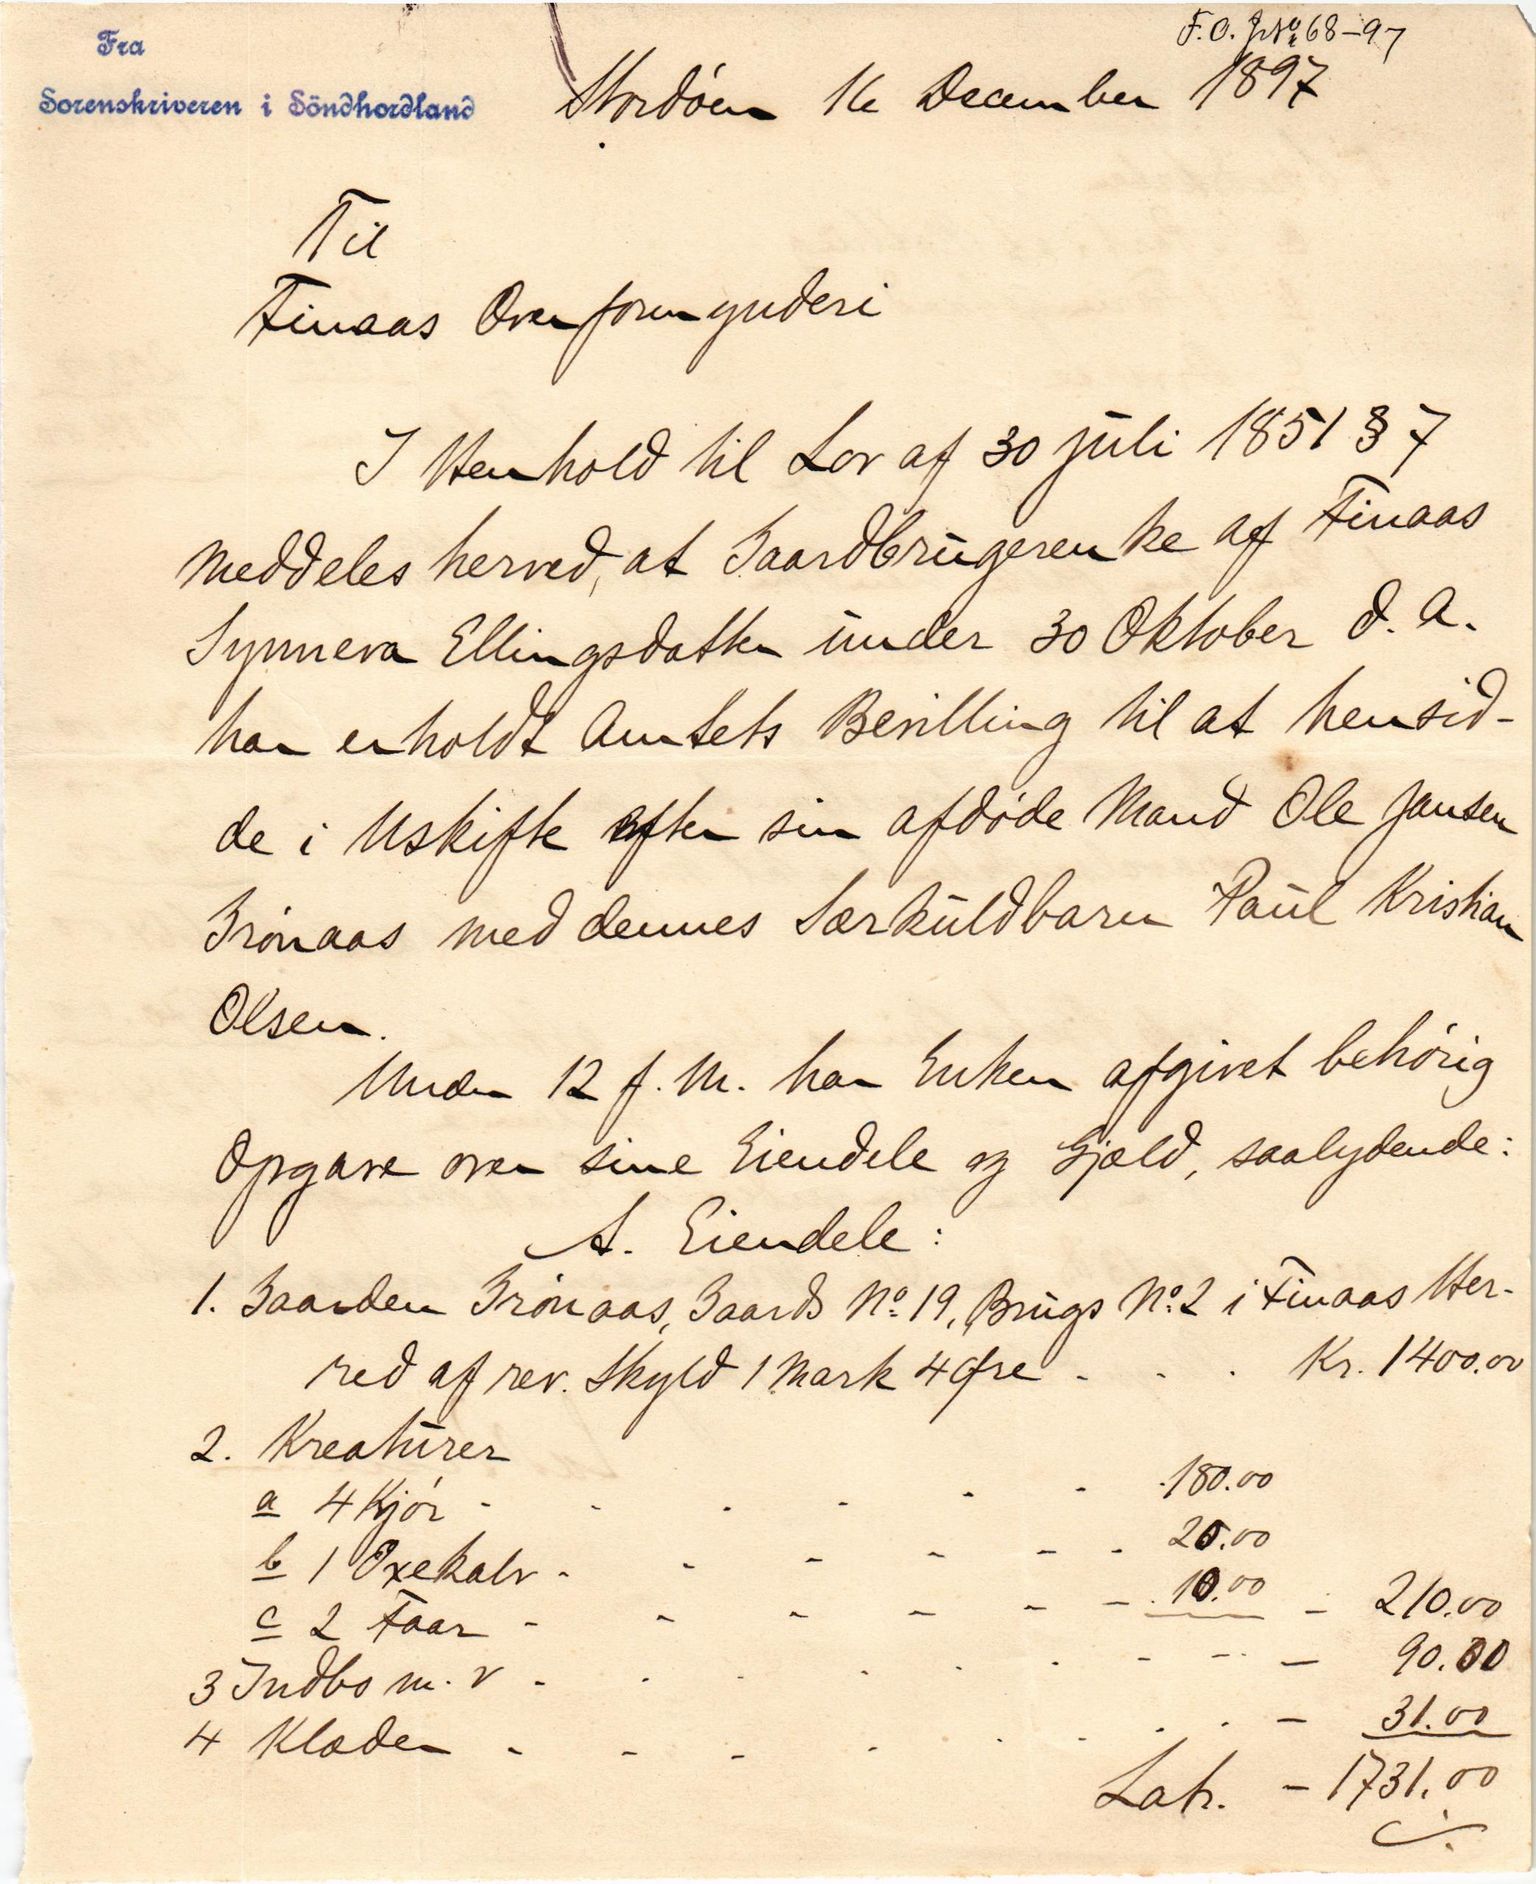 F.O. J.No. 68-97
Fra
Sorenskriveren i Söndhordland
Stordøen 16 December 1897
Til
Finaas Overformynderi
I Henhold til Lov af 30 Juli 1851 § 7
meddeles herved, at Gaardbrugerenke af Finaas
Synneva Ellingsdatter under 30 Oktober d. A.
har erholdt Amtets Bevilling til at hensid-
de i Uskifte efter sin afdøde Mand Ole Jansen
Grønaas med dennes Særkuldbarn Paul Kristian
Olsen.
Under 12 f. M. har Enken afgivet behørig
Opgave over sine Eiendele og Gjæld, saalydende:
A. Eiendele:
1. Gaarden Grønaas, Gaards No. 19, Brugs No. 2 i Finaas Her-
red af rev. Skyld 1 Mark 4 Øre - . . Kr. 1400.00
2. Kreaturer
a 4 Kjør - - - - - - 180.00
b 1 Oxekalv - - - - - - 20.00
c 2 Faar - - - - - - 10.00 - 210.00
3 Indbo m. v - . . . . - - - 90.00
4 Klæder - - - - . . . - 31.00
Latr. - 1731.00